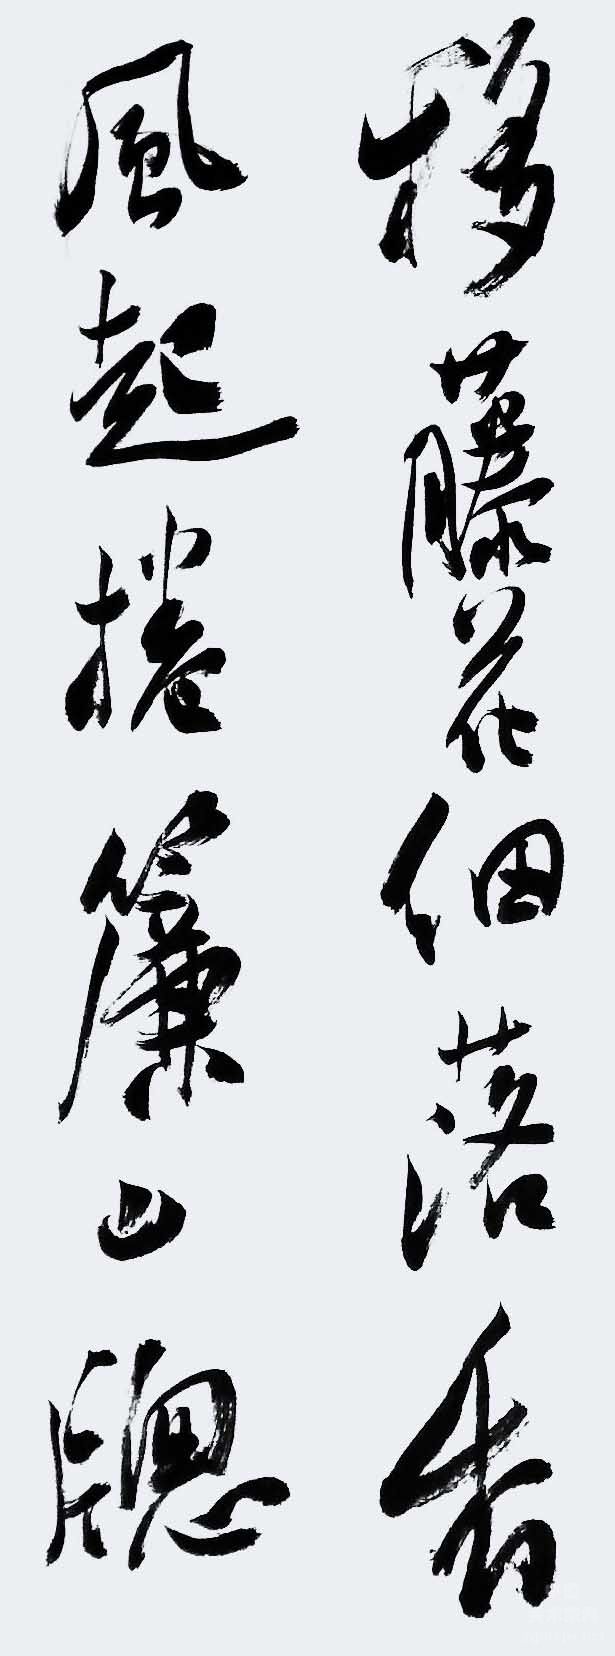 移藤花细落香
風起捲簾山牕